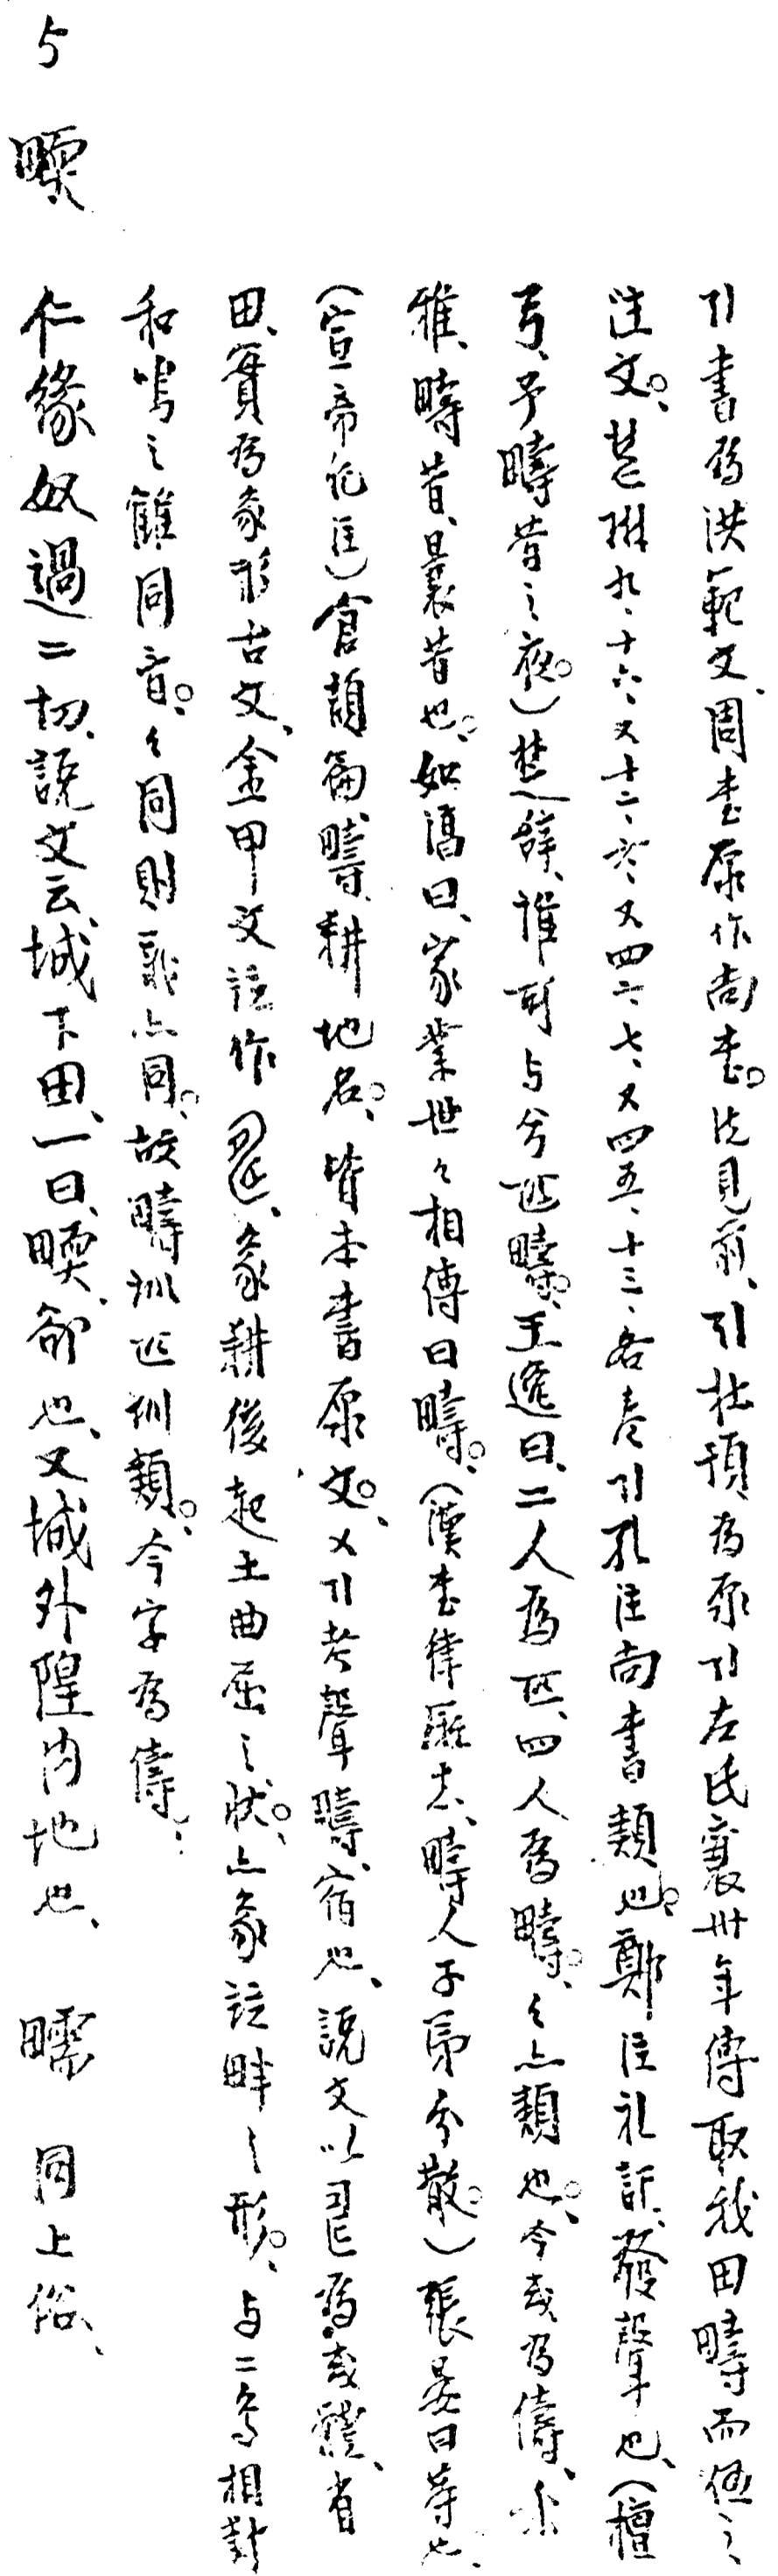 引書為洪範文、周書原作尚書。注見前、引杜預、為原引左氏襄卅年傳取我田疇而伍之
注文。慧琳九、十六、又十二、六、又四六、七、又四五、十三、各卷引孔注尚書類也。鄭注礼記、發聲也、(檀
弓、予疇昔之夜。)楚辭、誰可与兮匹疇、王逸曰、二人為匹、四人為疇。々亦類也。今或為儔、尒
雅、疇昔、曩昔也。如淳曰、家業世々相傳曰疇。(漢書律厤志、疇人子弟分散。)張晏曰等也、
(宣帝紀注)倉頡篇、疇、耕地名。皆本書原文。又引考聲疇、宿也、說文以𠃬為或體、省
田、實為象形古文、金甲文証作𠃬、象耕後起土曲屈之狀。亦象註畔之形。与二鳥相對
和鳴之雔同音。々同則義亦同。故疇訓匹訓類。今字為儔、
5 㬉 仁緣奴過二切、說文云、城下田、一曰、㬉、郤也、又城外隍内地也、 㬉 同上俗、